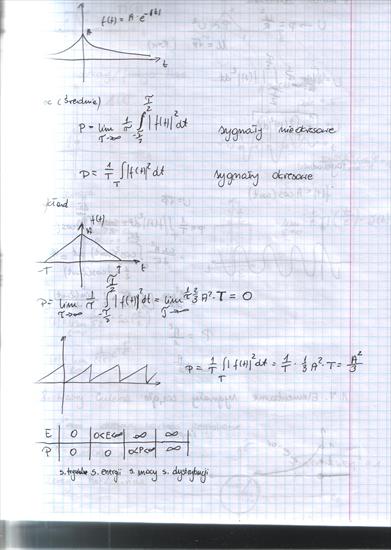 f(t) = A · e^-|t|
A
t
oc (średnia)
P = lim τ→∞ 1/τ ∫ -τ/2 τ/2 |f(t)|² dt sygnały nieokresowe
P = 1/T ∫T |f(t)|² dt sygnały okresowe
kład
f(t)
A
-T T t
P = lim τ→∞ 1/τ ∫ -τ/2 τ/2 |f(t)|² dt = lim τ→∞ 1/τ 2/3 A² · T = 0
P = 1/T ∫T |f(t)|² dt = 1/T · 1/3 A² · T = A²/3
E | 0 | 0<E<∞ | ∞ | ∞
P | 0 | 0 | 0<P<∞ | ∞
s. energii s. mocy s. dystrybucji